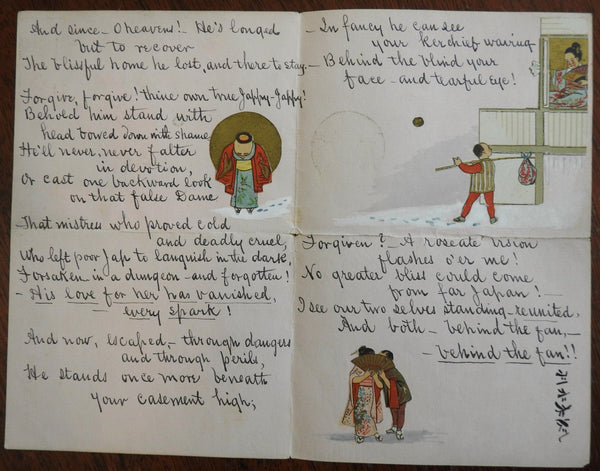 And since - O heavens! - He's longed
but to recover
The blissful home he lost, and there to stay. -
Forgive, forgive! thine own true Jappy-Jappy!
Behold him stand with
head bowed down with shame
He'll never, never falter
in devotion,
Or cast one backward look
on that false Dame
That mistress who proved cold
and deadly cruel,
Who left poor Jap to languish in the dark,
Forsaken in a dungeon - and forgotten!
- His love for her has vanished,
- every spark!
And now, escaped, - through dangers
and through perils,
He stands once more beneath
your casement high;
- In fancy he can see
your kerchief waving
- Behind the blind your
face - and tearful eye!
Forgiven? - A roseate vision
flashes o'er me!
No greater bliss could come
from far Japan! -
I see our two selves standing - reunited,
And both - behind the fan, -
- behind the fan!!